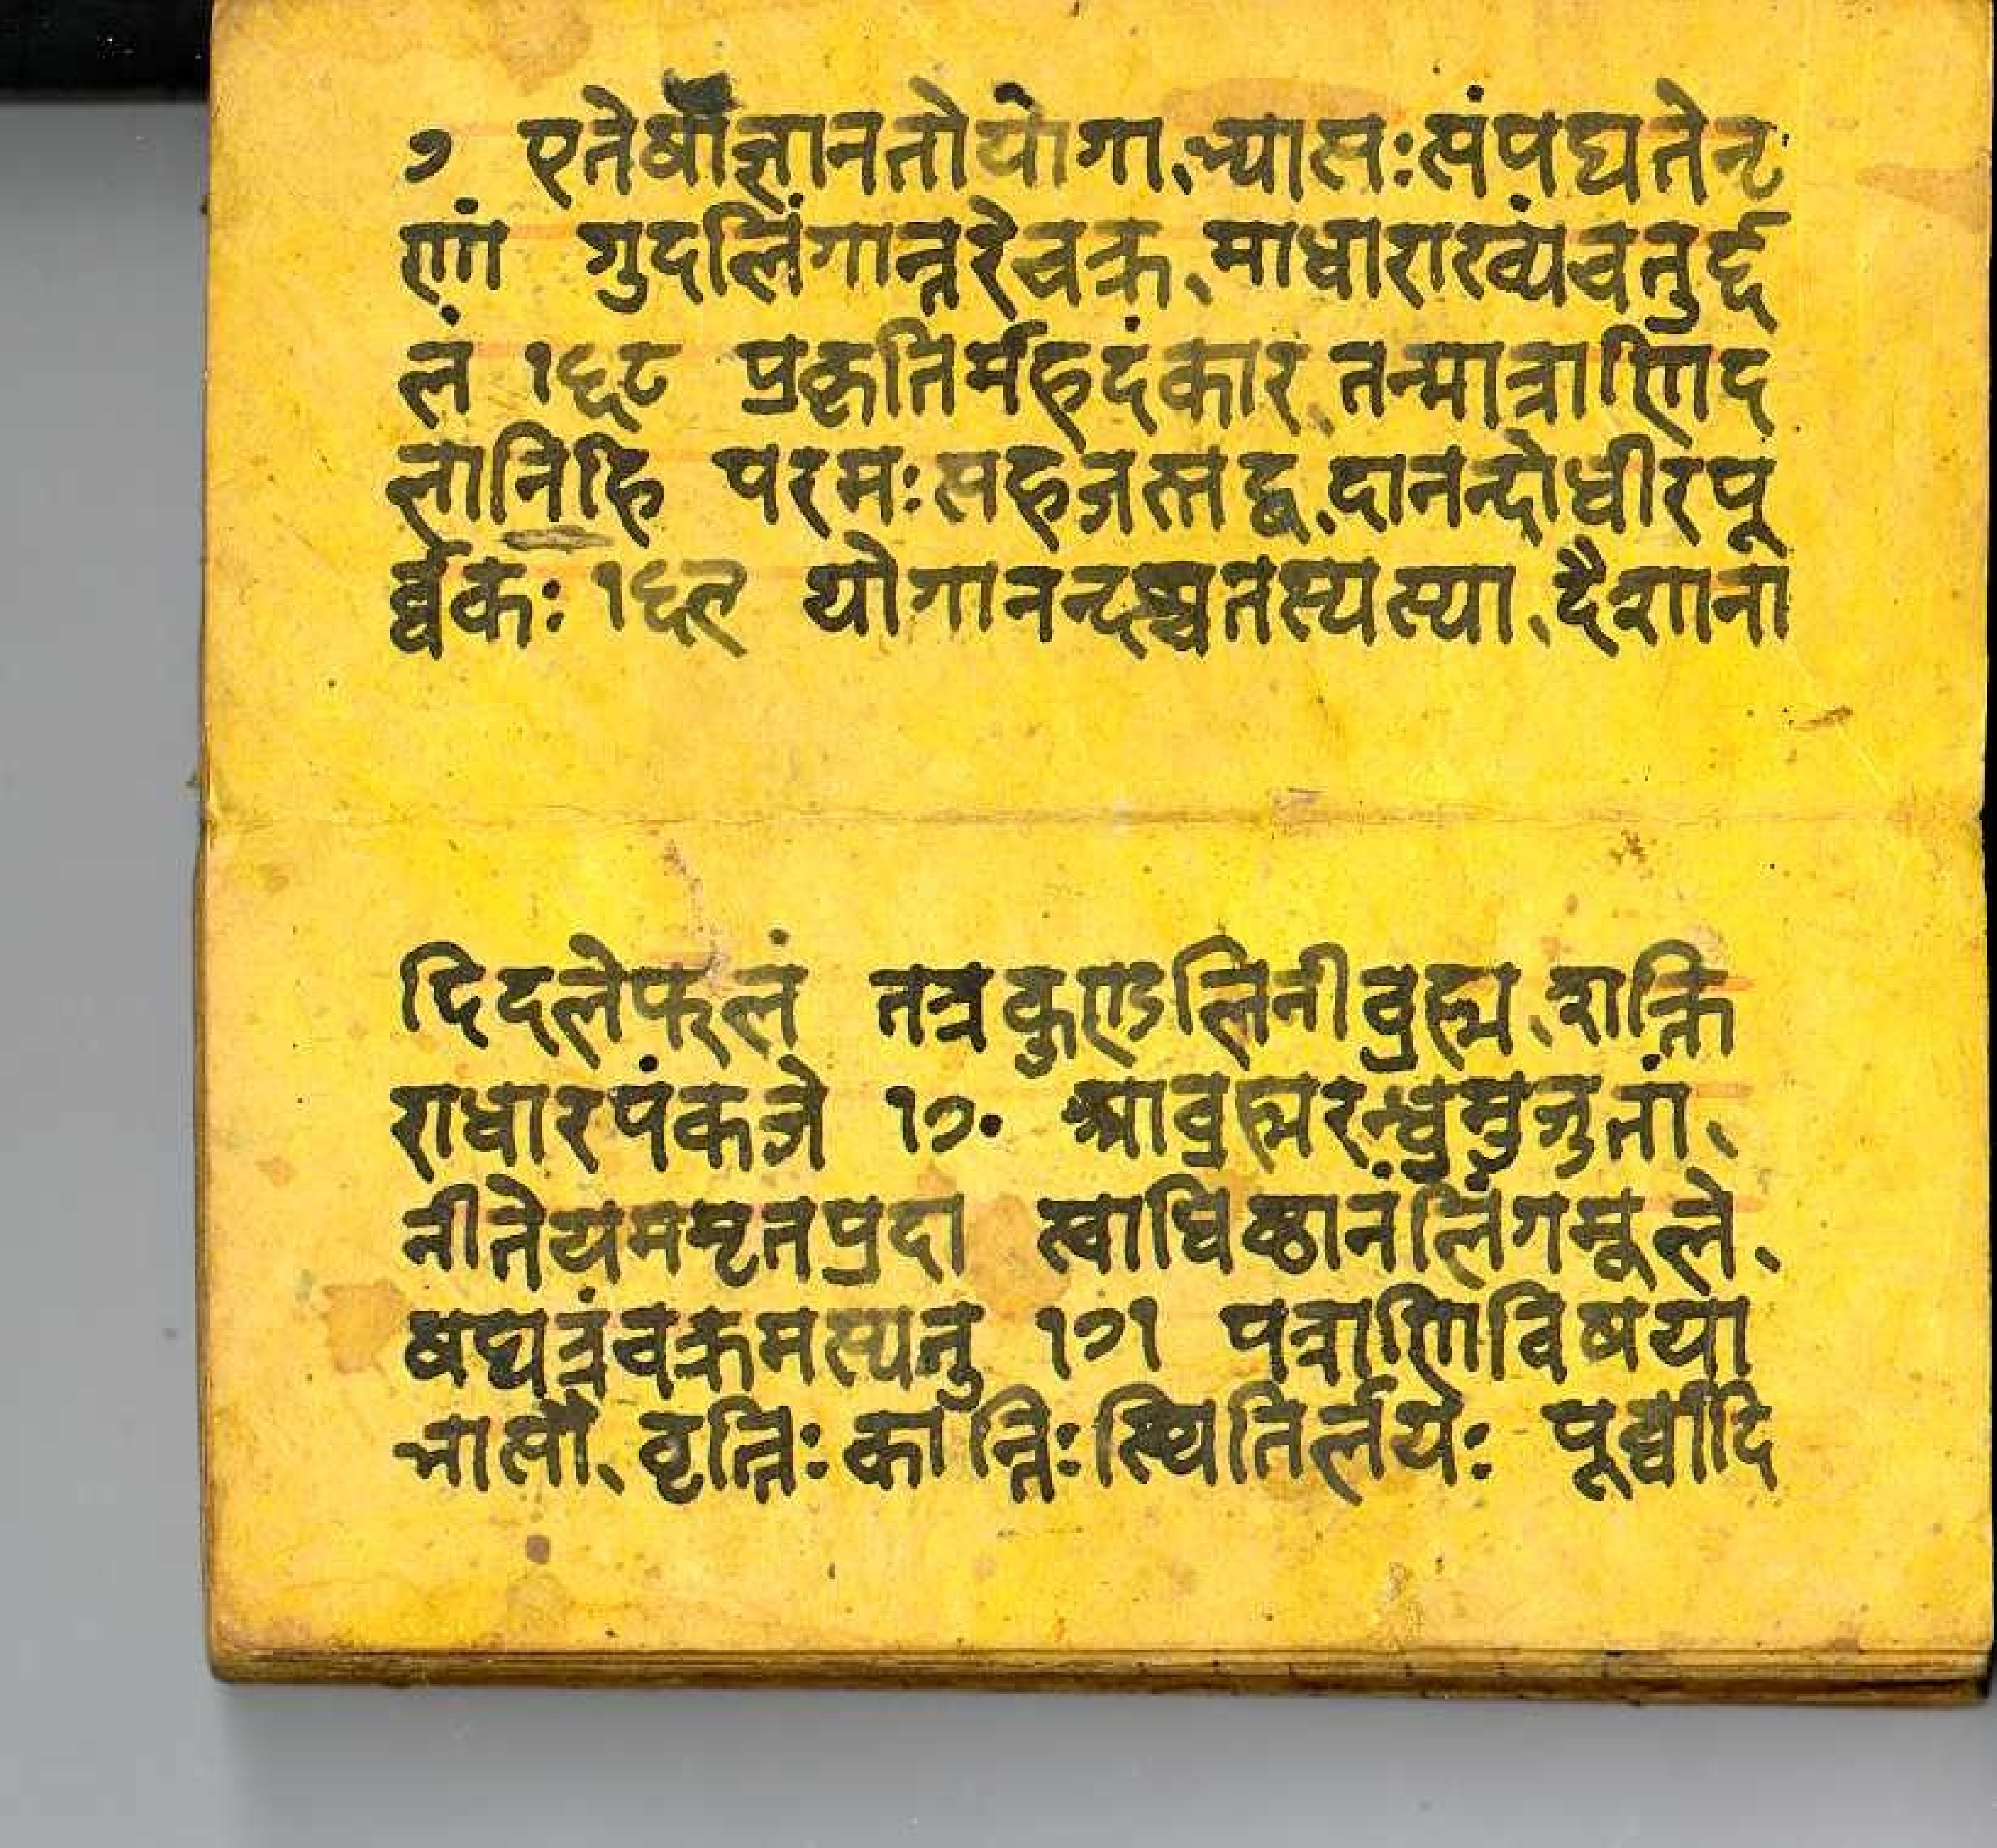 ७ एतेषांज्ञानतोयोगा,भ्यासःसंपद्यतेनृ
णां गुदलिंगान्तरेचक्र,माधाराख्यंचतुर्द्द
लं १६८ प्रकृतिर्महदंकार,तन्मात्राणिद
लानिहि परमःसहजस्तद्व,दानन्दोधीरपू
र्व्वकः १६९ योगानन्दश्चतस्यस्या,दैशाना
दिदलेफलं तत्रकुण्डलिनीब्रह्म,शक्ति
राधारपंकजे १७० आब्रह्मरन्ध्रमृजुतां,
नीतेयममृतप्रदा स्वाधिष्ठानंलिंगमूले,
षट्पत्रंचक्रमस्यतु १७१ पत्राणिविषया
भासौ,वृत्तिःकान्तिःस्थितिर्लयः पूर्व्वादि